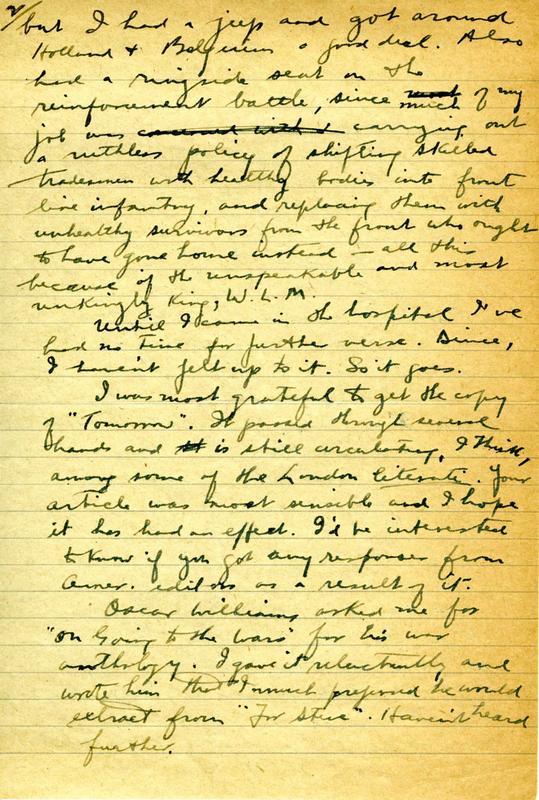 2/
but I had a jeep and got around
Holland & Belgium a good deal. Also
had a ringside seat on the
reinforcement battle, since most much of my
job was carrying out
a ruthless policy of shifting skilled
tradesmen with healthy bodies into front
line infantry, and replacing them with
unhealthy survivors from the front who ought
to have gone home instead — all this
because of the unspeakable and most
unkingly King, W. L. M.
Until I came in the hospital I've
had no time for further verse. Since,
I haven't felt up to it. So it goes.
I was most grateful to get the copy
of "Tomorrow". It passed through several
hands and it is still circulating, I think,
among some of the London literati. Your
article was most sensible and I hope
it has had an effect. I'd be interested
to know if you got any responses from
Amer. editors as a result of it.
Oscar Williams asked me for
"On Going to the Wars" for his war
anthology. I gave it reluctantly and
wrote him that I much preferred he would
extract from "For Steve". Haven't heard
further.